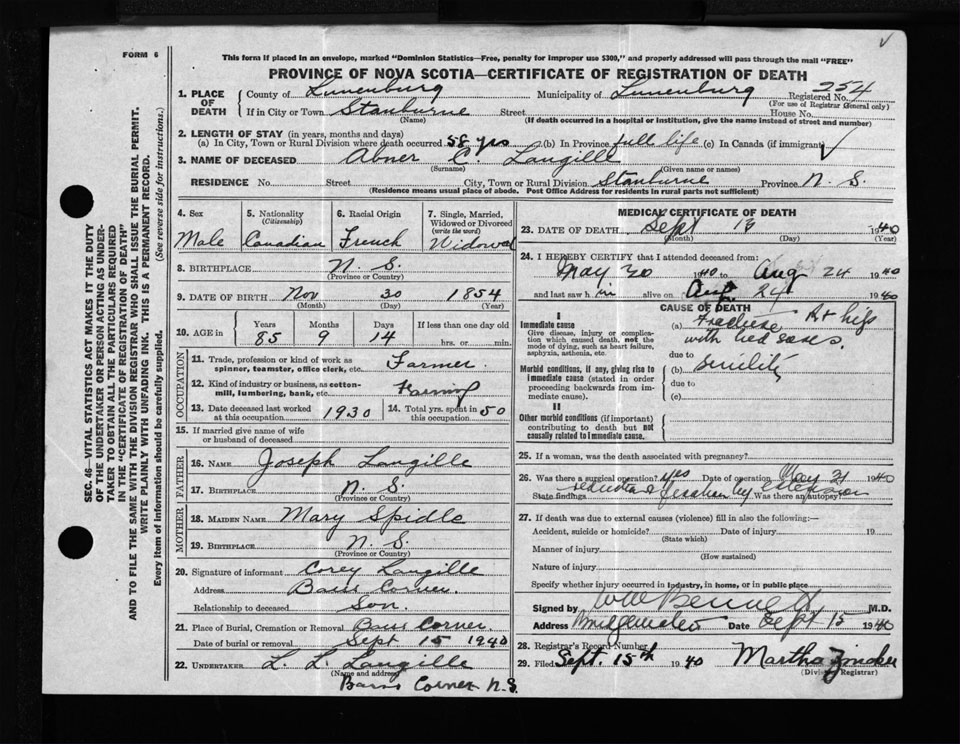 FORM 6
This form if placed in an envelope, marked "Dominion Statistics—Free, penalty for improper use $300," and properly addressed will pass through the mail "FREE"
PROVINCE OF NOVA SCOTIA—CERTIFICATE OF REGISTRATION OF DEATH
SEC. 46—VITAL STATISTICS ACT MAKES IT THE DUTY
OF THE UNDERTAKER OR PERSON ACTING AS UNDER-
TAKER TO OBTAIN ALL THE PARTICULARS REQUIRED
IN THE "CERTIFICATE OF REGISTRATION OF DEATH"
AND TO FILE THE SAME WITH THE DIVISION REGISTRAR WHO SHALL ISSUE THE BURIAL PERMIT.
WRITE PLAINLY WITH UNFADING INK. THIS IS A PERMANENT RECORD.
Every item of information should be carefully supplied. (See reverse side for instructions.)
1. PLACE OF DEATH County of Lunenburg Municipality of Lunenburg Registered No. 254
(For use of Registrar General only)
If in City or Town Stanburne Street House No.
(Name) (If death occurred in a hospital or institution, give the name instead of street and number)
2. LENGTH OF STAY (in years, months and days)
(a) In City, Town or Rural Division where death occurred 58 yrs (b) In Province full life (c) In Canada (if immigrant) ✓
3. NAME OF DECEASED Abner C. Langille
(Surname) (Given name or names)
RESIDENCE No. Street City, Town or Rural Division Stanburne Province N. S.
(Residence means usual place of abode. Post Office Address for Residents in rural parts not sufficient)
4. Sex Male
5. Nationality (Citizenship) Canadian
6. Racial Origin French
7. Single, Married, Widowed or Divorced (write the word) Widowed
8. BIRTHPLACE N. S.
(Province or Country)
9. DATE OF BIRTH Nov 30 1854
(Month) (Day) (Year)
10. AGE in Years 85 Months 9 Days 14 If less than one day old hrs. or min.
OCCUPATION
11. Trade, profession or kind of work as spinner, teamster, office clerk, etc. Farmer
12. Kind of industry or business, as cotton-mill, lumbering, bank, etc. Farming
13. Date deceased last worked at this occupation 1930
14. Total yrs. spent in this occupation 50
15. If married give name of wife or husband of deceased
FATHER
16. NAME Joseph Langille
17. BIRTHPLACE N. S.
(Province or Country)
MOTHER
18. MAIDEN NAME Mary Spidle
19. BIRTHPLACE N. S.
(Province or Country)
20. Signature of informant Corey Langille
Address Barss Corner.
Relationship to deceased Son.
21. Place of Burial, Cremation or Removal Barss Corner.
Date of burial or removal Sept 15 1940
22. UNDERTAKER L. L. Langille
(Name and address)
Barss Corner N.S.
MEDICAL CERTIFICATE OF DEATH
23. DATE OF DEATH Sept 13 1940
(Month) (Day) (Year)
24. I HEREBY CERTIFY that I attended deceased from:
May 20 1940 to Aug 24 1940
and last saw him alive on Aug. 24 1940
CAUSE OF DEATH
I
Immediate cause
Give disease, injury or complication which caused death, not the mode of dying, such as heart failure, asphyxia, asthenia, etc.
(a) Fracture Rt hip
with bed sores.
due to
Morbid conditions, if any, giving rise to immediate cause (stated in order proceeding backwards from immediate cause).
(b) Senility
due to
(c)
II
Other morbid conditions (if important) contributing to death but not causally related to immediate cause.
25. If a woman, was the death associated with pregnancy?
26. Was there a surgical operation? yes Date of operation May 21 1940
State findings reduction of fracture by extension Was there an autopsy
27. If death was due to external causes (violence) fill in also the following:—
Accident, suicide or homicide? Date of injury 19
(State which)
Manner of injury
(How sustained)
Nature of injury
Specify whether injury occurred in industry, in home, or in public place
Signed by Bennett M.D.
Address Bridgewater Date Sept 15 1940
28. Registrar's Record Number
29. Filed Sept. 15th 1940 Martha Zincke
(Division Registrar)